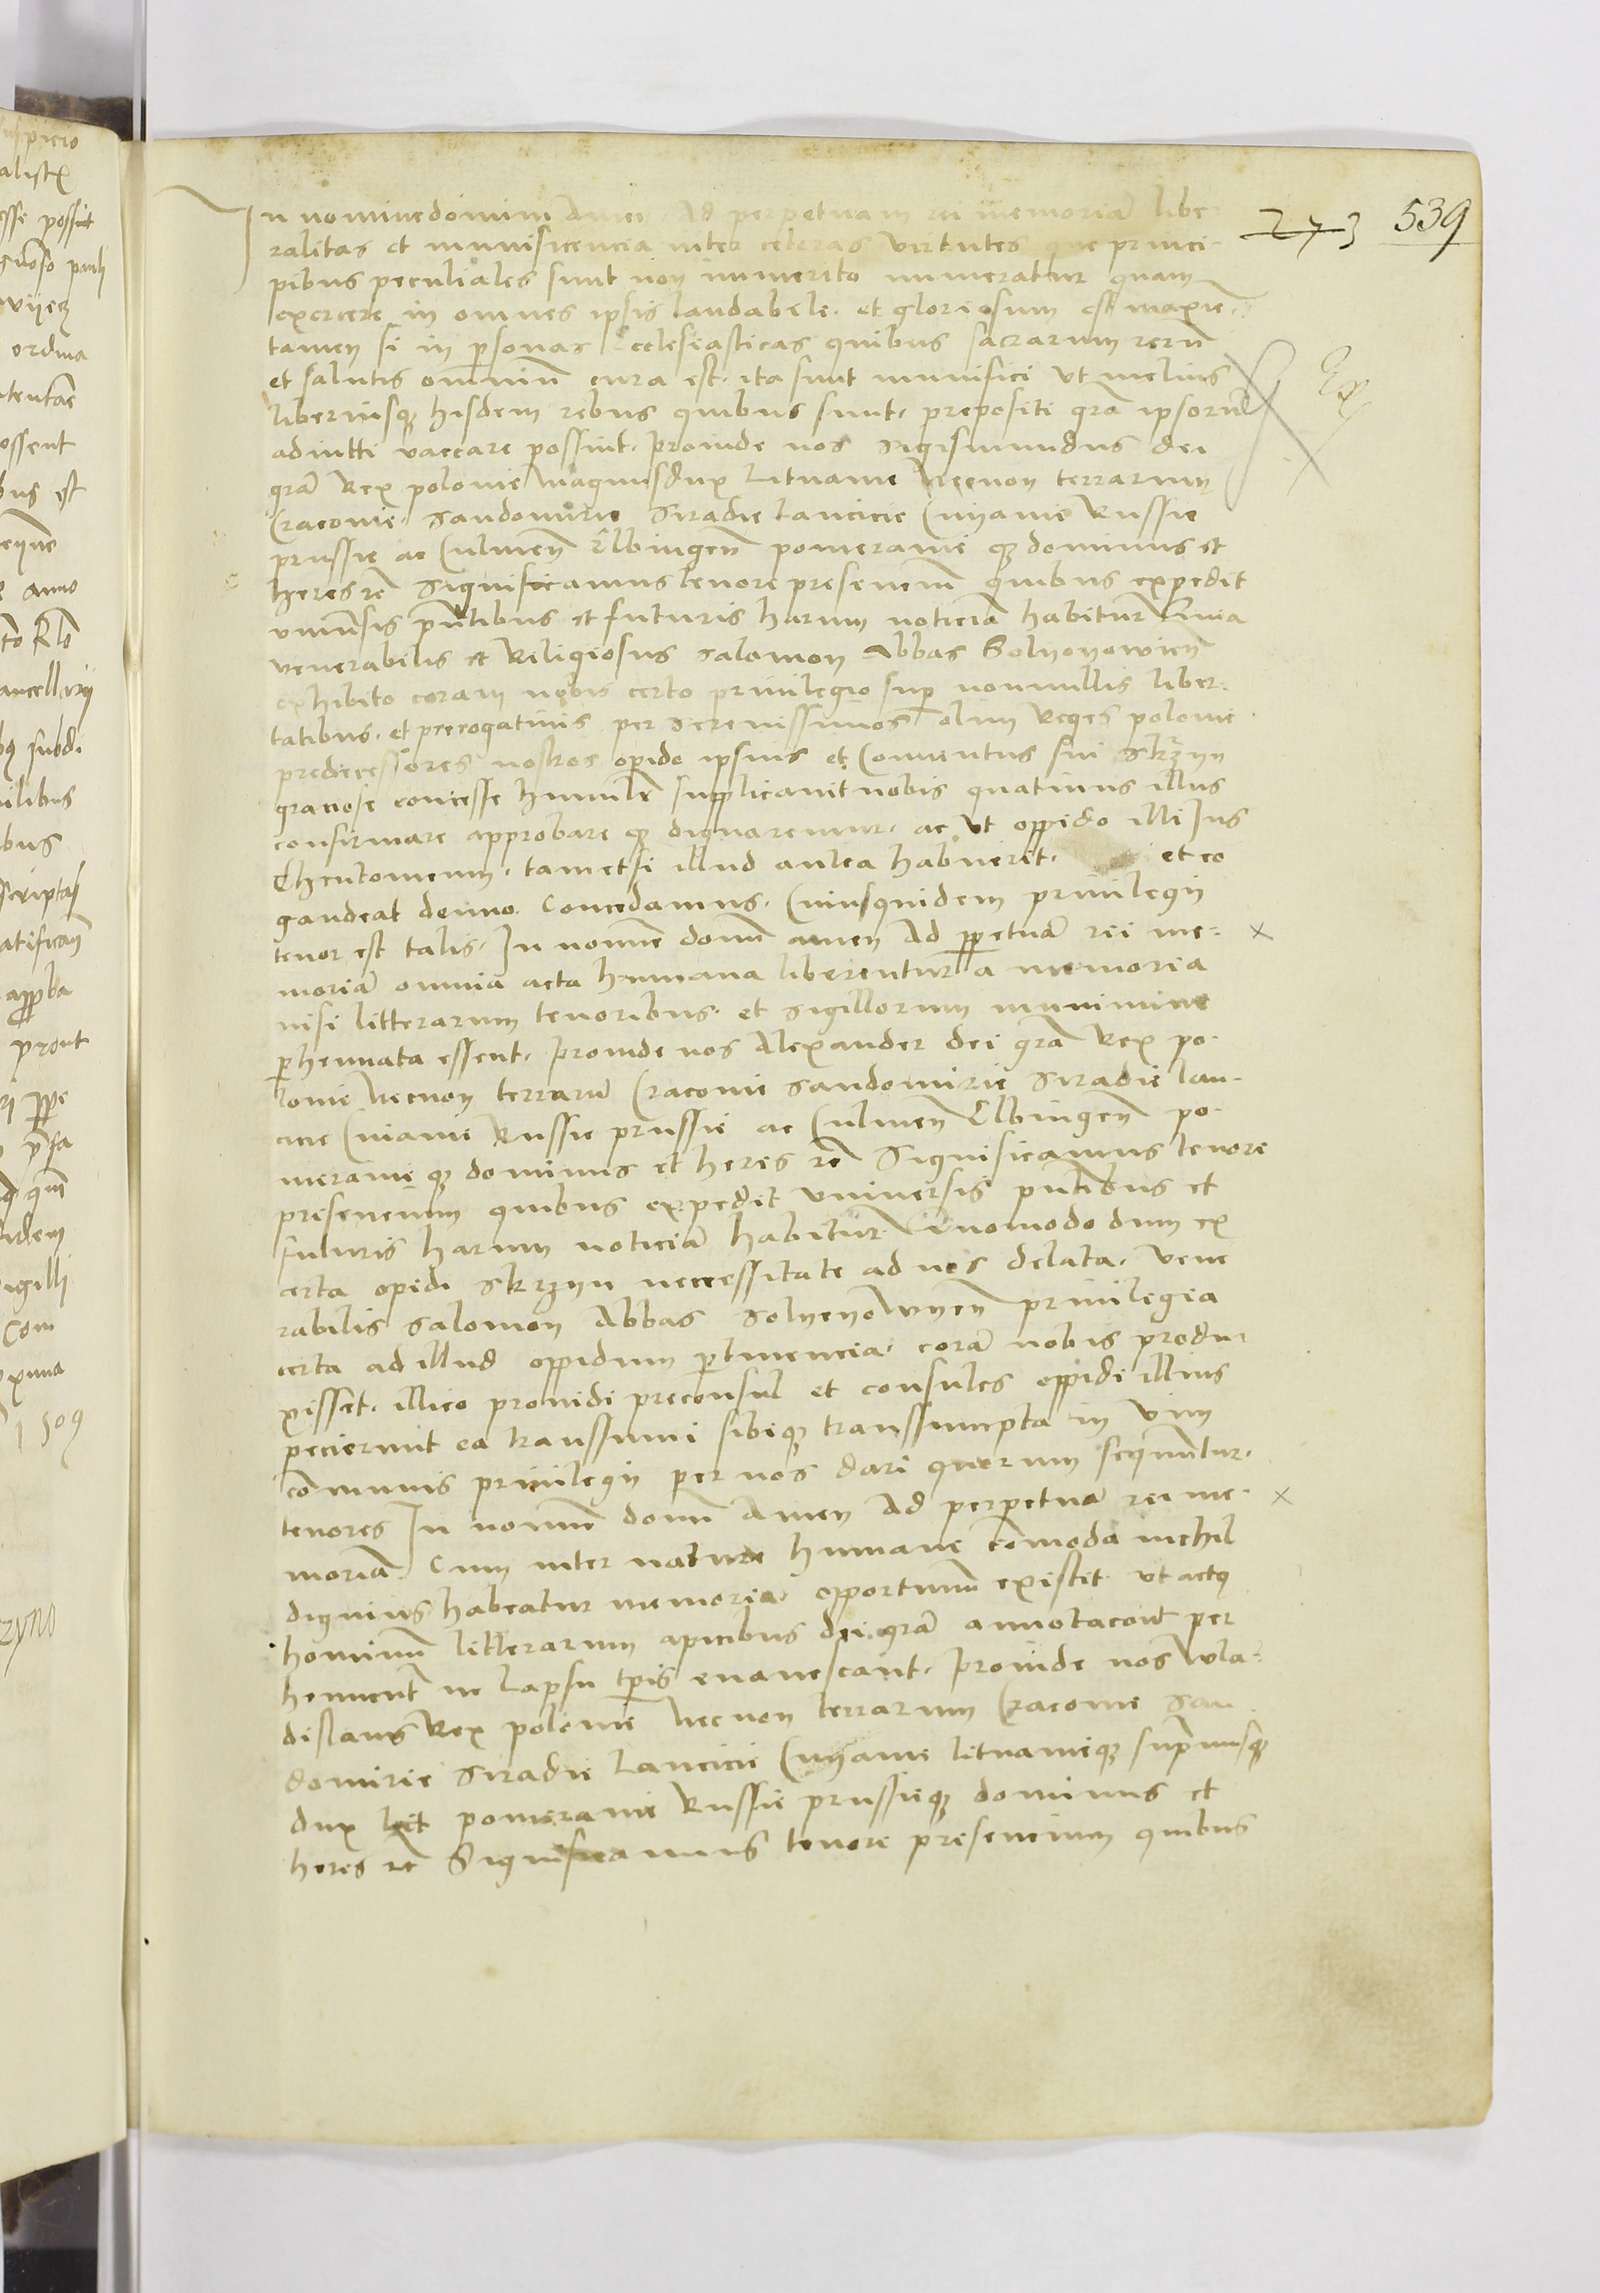 In nomine domini Amen Ad perpetuam rei memoriam libe-
ralitas et munificencia inter ceteras virtutes que princi-
pibus peculiales sunt non immerito numeratur quam
exercere in omnes ipsis laudabile et gloriosum est maxie
tamen si in personas ecclesiasticas quibus sacrarum reru
et salutis omniu cura est ita sunt munifici ut melius
liberiusq hisdem rebus quibus sunt prepositi gra ipsoru
adiutti vaccare possint proinde nos Sigismundus dei
gra Rex polonie Magnusdux Lituanie Necnon terrarum
Cracovie Sandomirie Siradie Lancicie Cuyavie Russie
prussie ac Culmen Elbingen pomeranie q dominus et
heres rc Significamus tenore presencium quibus expedit
universis pntibus et futuris harum noticia habitur Quia
venerabilis et Religiosus Salomon Abbas Solyeyowien
exhibito coram nobis certo privilegio sup nonnullis liber-
tatibus et prerogativis per Serenissimos olim Reges polonie
predecessores nostros opido ipsius et Conventus sui Skrzyn
graciose concesse humile supplicavit nobis quatinus illus
confirmare approbare q dignaremur ac ut oppido illi Ius
Theutonicum tametsi illud antea habuerit et eo
gaudeat denuo Concedamus Cuiusquidem privilegii
tenor est talis In nomine domi amen Ad ppetua rei me-
moria omnia acta humana liberentur a memoria
nisi litterarum tenoribus et sigillorum munimine
perhennata essent proinde nos Alexander dei gra Rex po-
lonie Necnon terraru Cracovie Sandomirie Siradie lan-
cicie Cuiavie Russie prussie ac Culmen Elbingen po-
meranie q dominus et heres rc Significamus tenore
presencium quibus expedit universis pntibus et
futuris harum noticia habitur Quomodo dum ex
certa opidi Skrzyn necessitate ad nos delata vene
rabilis Salomon Abbas Solyeyowyen privilegia
certa ad illud oppidum ptinencia cora nobis produ-
xisset illico providi preconsul et consules oppidi illius
pecierunt ea transsumi sibiq transsumpta in vim
comunis privilegii per nos dari quorum sequuntur
tenores In nomine domi Amen Ad perpetua rei me-
moria Cum inter nature humane comoda nichil
dignius habeatur memoria opportunu existit ut actus
hominu litterarum apicibus dei gra annotacoit per
hennent ne lapsu tpis evanescant proinde nos Wla-
dislaus Rex polonie Necnon terrarum Cracovie San
domirie Siradie Lancicie Cuyavie lituanieq supremusq
dux heit pomeranie Russie prussieq dominus et
heres rc Significamus tenore presencium quibus
273
539